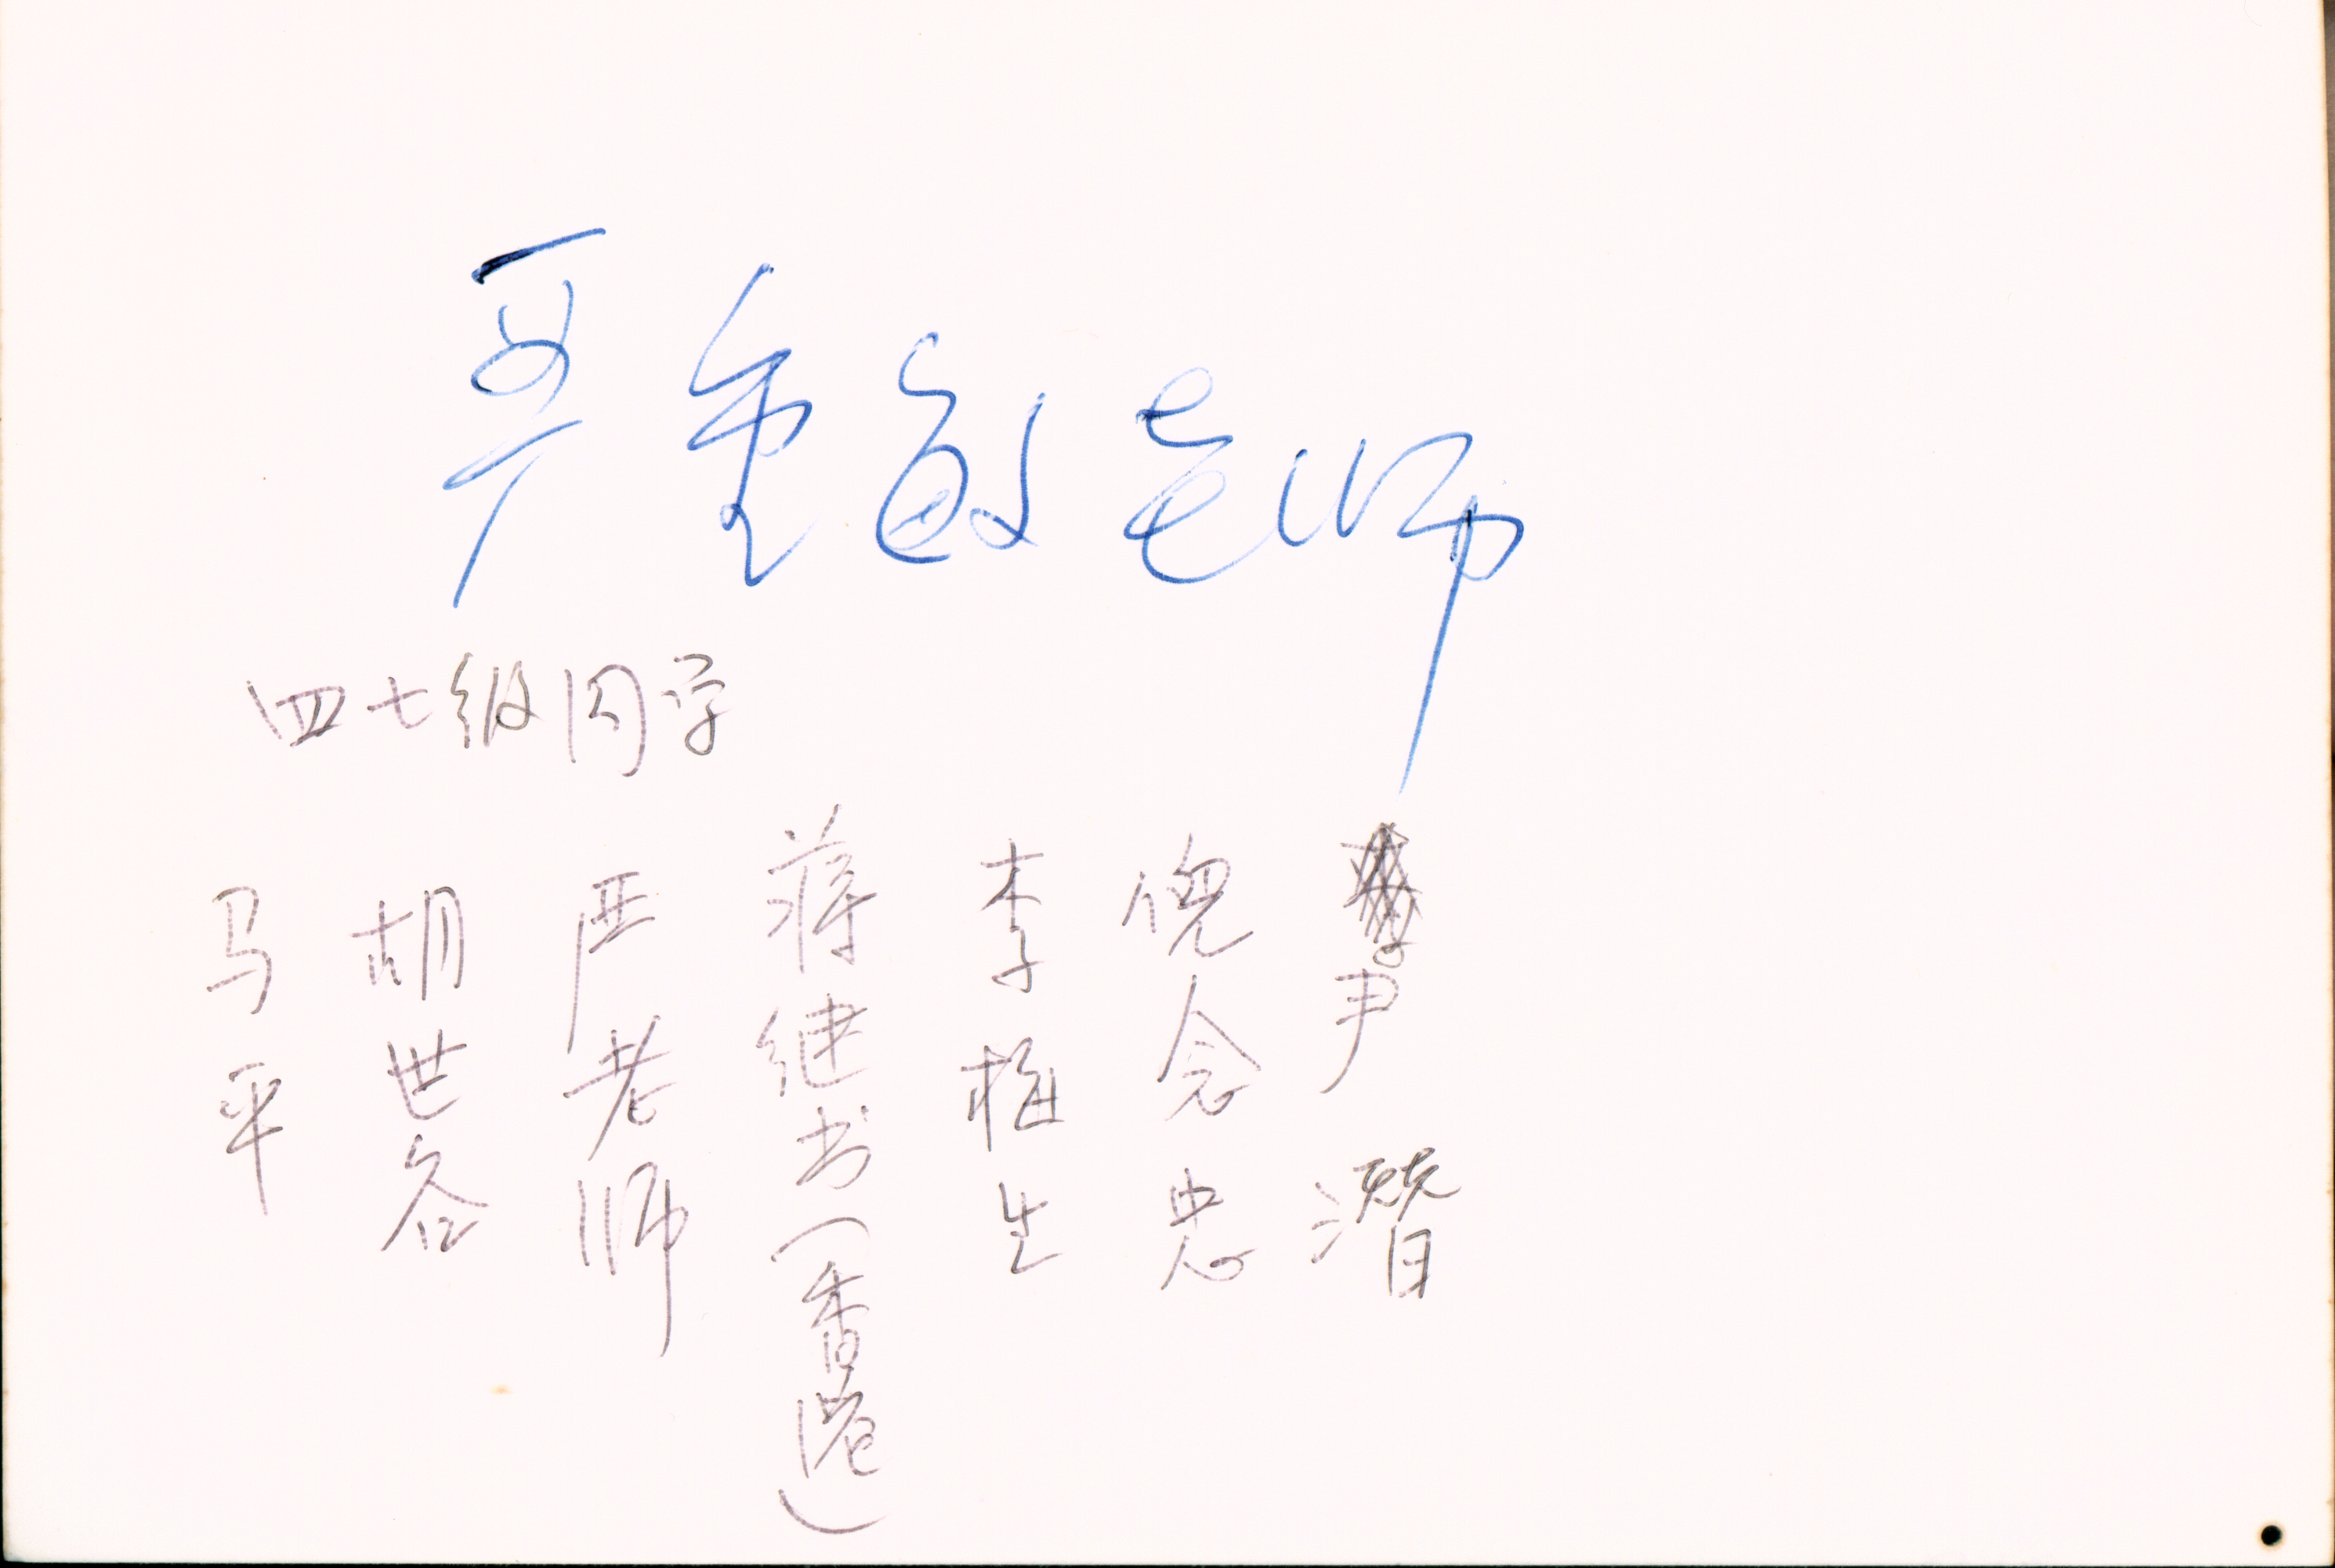 严重敏老师
四七级同学
马平
胡世
严老师
蒋继书（香港）
李 生
倪念忠
尹潜